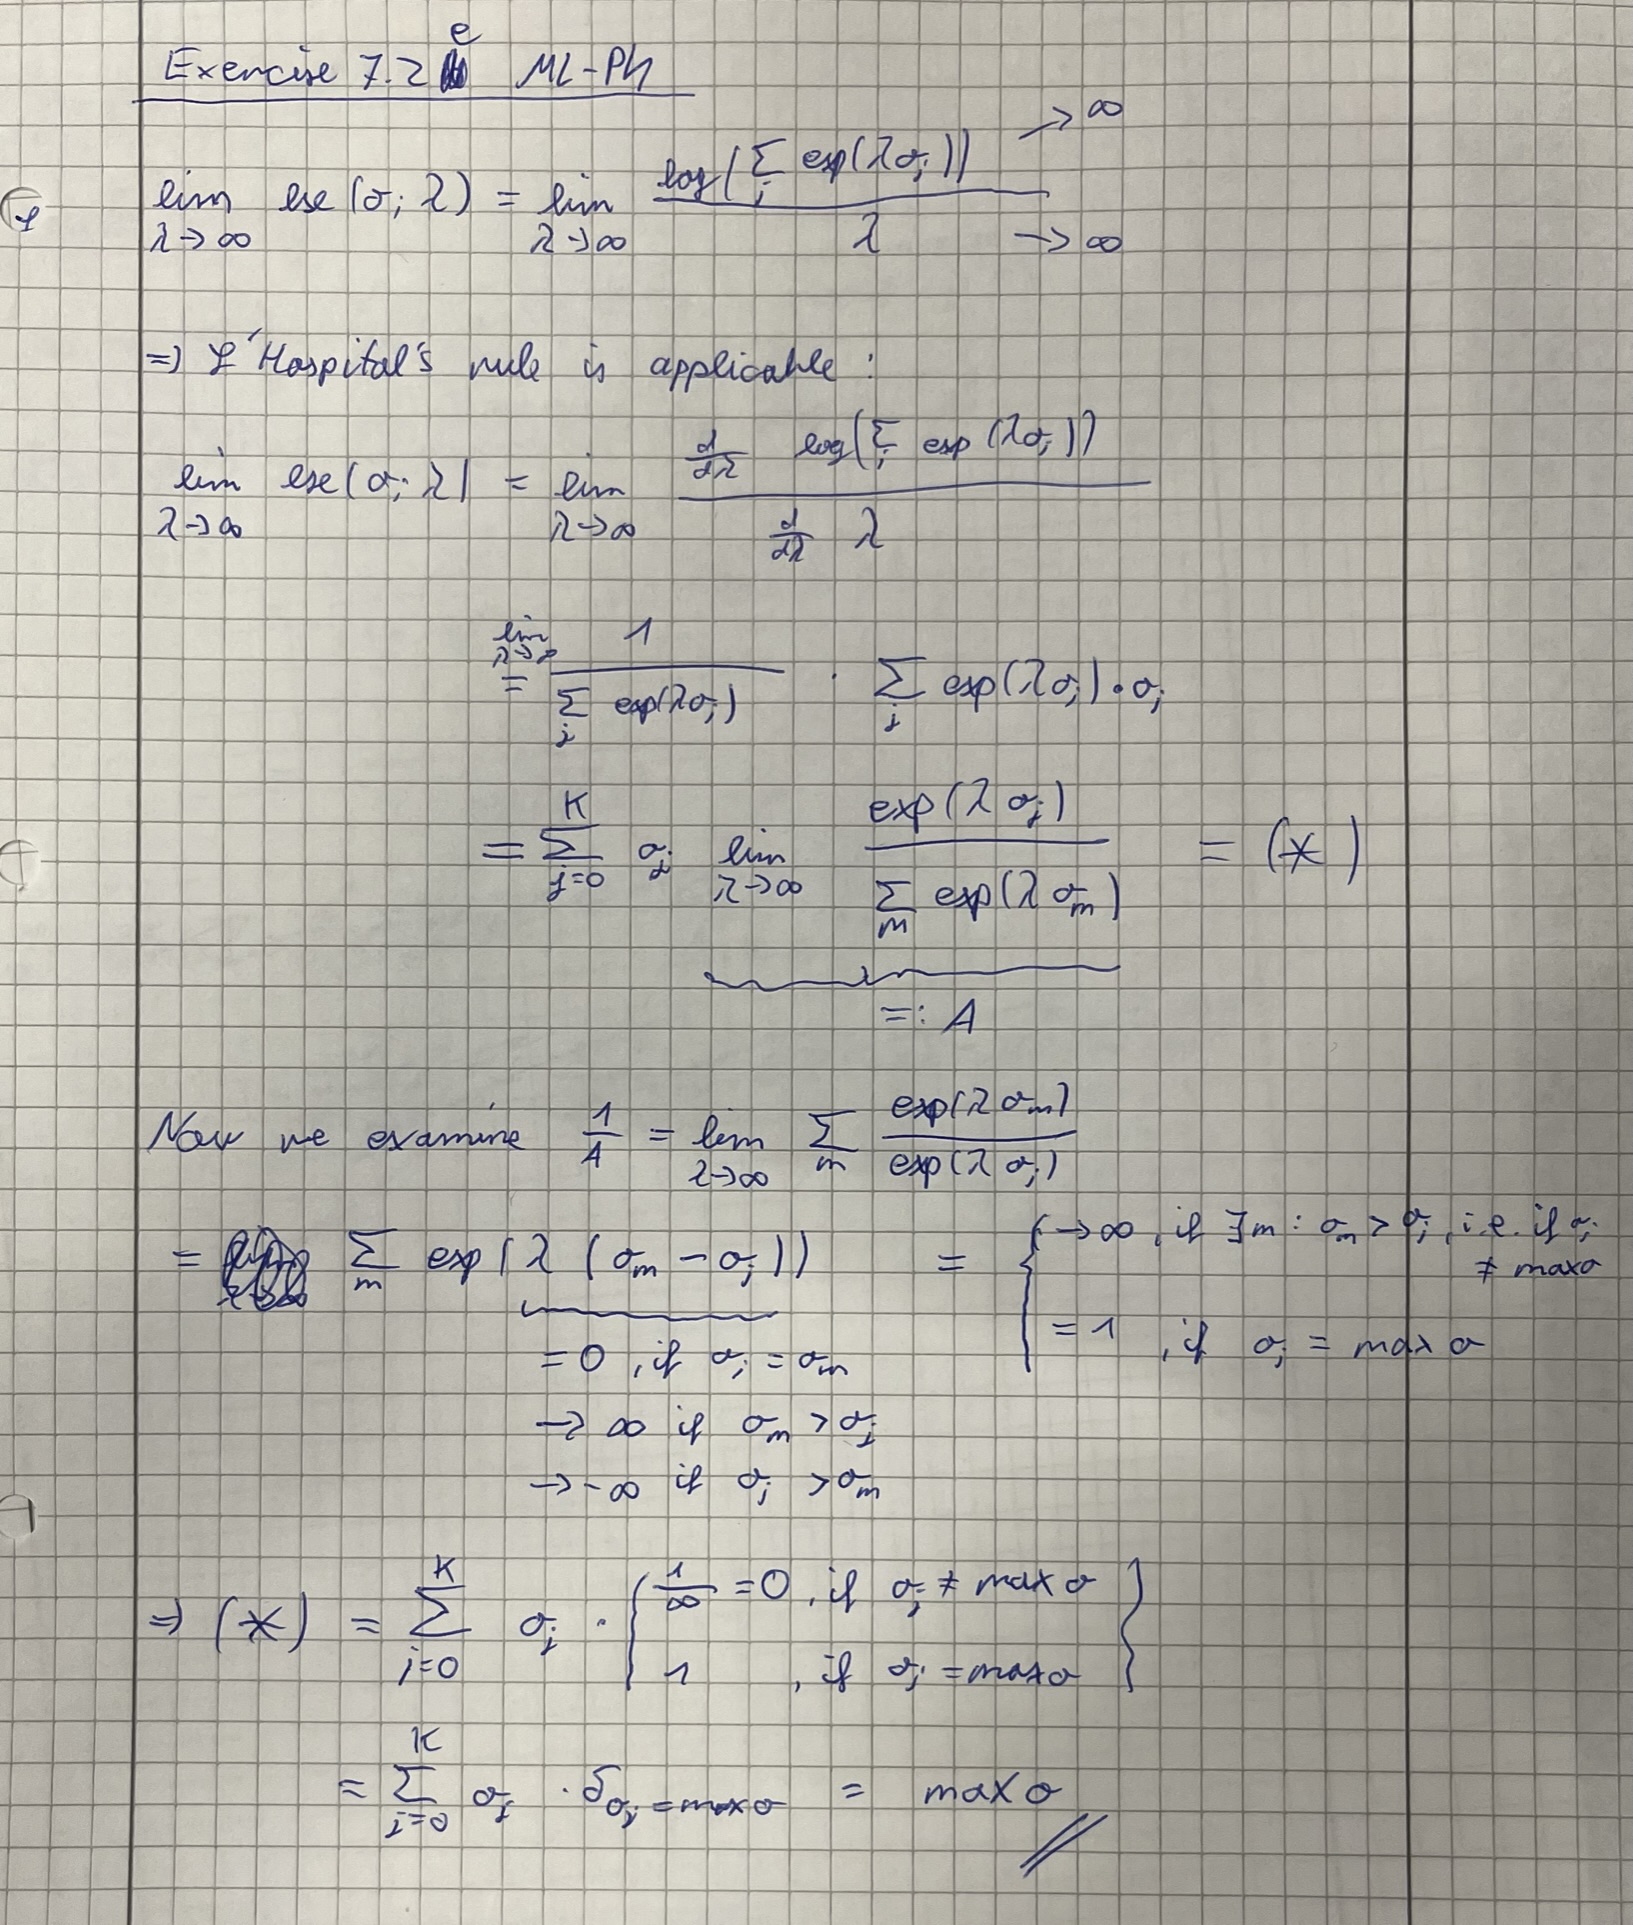 Exercise 7.2 e ML-PH
lim_{λ→∞} lse(σ; λ) = lim_{λ→∞} log(∑_j exp(λσ_j)) / λ →∞ →∞
=> L'Hospital's rule is applicable:
lim_{λ→∞} lse(σ; λ) = lim_{λ→∞} d/dλ log(∑_j exp(λσ_j)) / d/dλ λ
= lim_{λ→∞} 1 / ∑_j exp(λσ_j) · ∑_j exp(λσ_j) · σ_j
= ∑_{j=0}^{K} σ_j lim_{λ→∞} exp(λσ_j) / ∑_m exp(λσ_m) = (*)
=: A
Now we examine 1/A = lim_{λ→∞} ∑_m exp(λσ_m) / exp(λσ_j)
= ∑_m exp(λ(σ_m - σ_j)) = { →∞, if ∃m: σ_m > σ_j, i.e. if σ_j ≠ max σ
= 1, if σ_j = max σ
= 0, if σ_j = σ_m
→ ∞ if σ_m > σ_j
→ -∞ if σ_j > σ_m
=> (*) = ∑_{j=0}^{K} σ_j · { 1/∞ = 0, if σ_j ≠ max σ
1, if σ_j = max σ }
= ∑_{j=0}^{K} σ_j · δ_{σ_j = max σ} = max σ